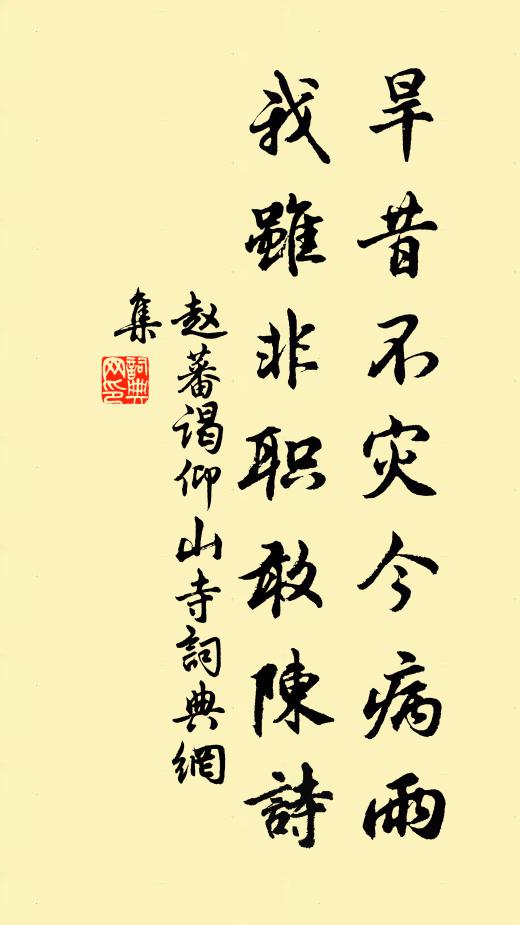 旱昔不灾今病雨
我雖非职敢陳詩
赵蕃谒仰山寺詞典網
集
詞典
网印